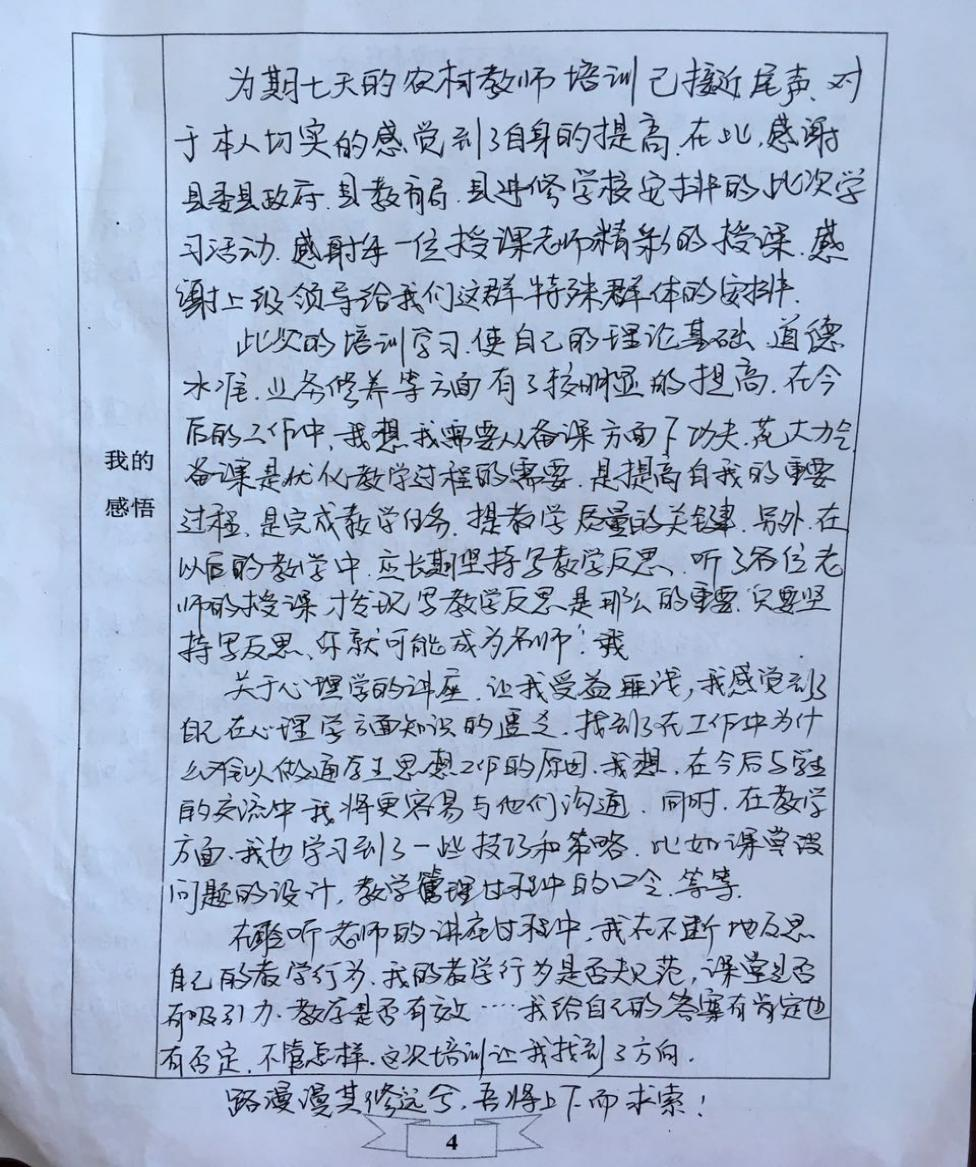 为期七天的农村教师培训已接近尾声、对
于本人切实的感觉到了自身的提高.在此,感谢
县委县政府.县教育局.县进修学校安排的此次学
习活动.感谢每一位授课老师精彩的授课.感
谢上级领导给我们这群特殊群体的安排.
此次的培训学习.使自己的理论基础、道德
水准.业务修养等方面有了较明显的提高.在今
后的工作中,我想我需要从备课方面下功夫.花大力气
备课是优化教学过程的需要.是提高自我的重要
过程.是完成教学任务.提教学质量的关键.另外.在
以后的教学中.应长期坚持写教学反思、听了各位老
师的授课.才发现写教学反思是那么的重要.只要坚
持写反思、你就可能成为名师!我
我的
感悟
关于心理学的讲座.让我受益匪浅,我感觉到了
自己在心理学方面知识的匮乏.找到了在工作中为什
么难以做通学生思想工作的原因.我想.在今后与学生
的交流中我将更容易与他们沟通.同时.在教学
方面.我也学习到了一些技巧和策略.比如课堂
问题的设计,教学管理过程中的口令.等等.
在聆听老师的讲座过程中,我在不断地反思
自己的教学行为.我的教学行为是否规范,课堂是否
有吸引力.教学是否有效……我给自己的答案有肯定也
有否定.不管怎样.这次培训让我找到了方向.
路漫漫其修远兮,吾将上下而求索!
4